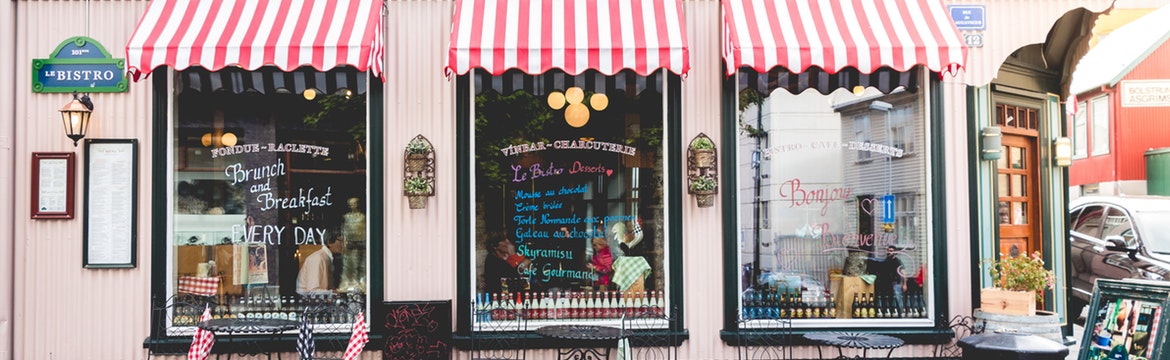 101 BTR
LE BISTRO
FONDUE - RACLETTE
Brunch
and
Breakfast
EVERY DAY
VÍNBAR - CHARCUTERIE
Le Bistro Desserts
Mousse au chocolat
Crème brûlée
Torte Normande aux pommes
Gateau au chocolat
Skyramisu
Café Gourmand
BISTRO - CAFÉ - DESSERTS
Bonjour
Bienvenue
12
BOLSTRUN
ÁSGRÍMS